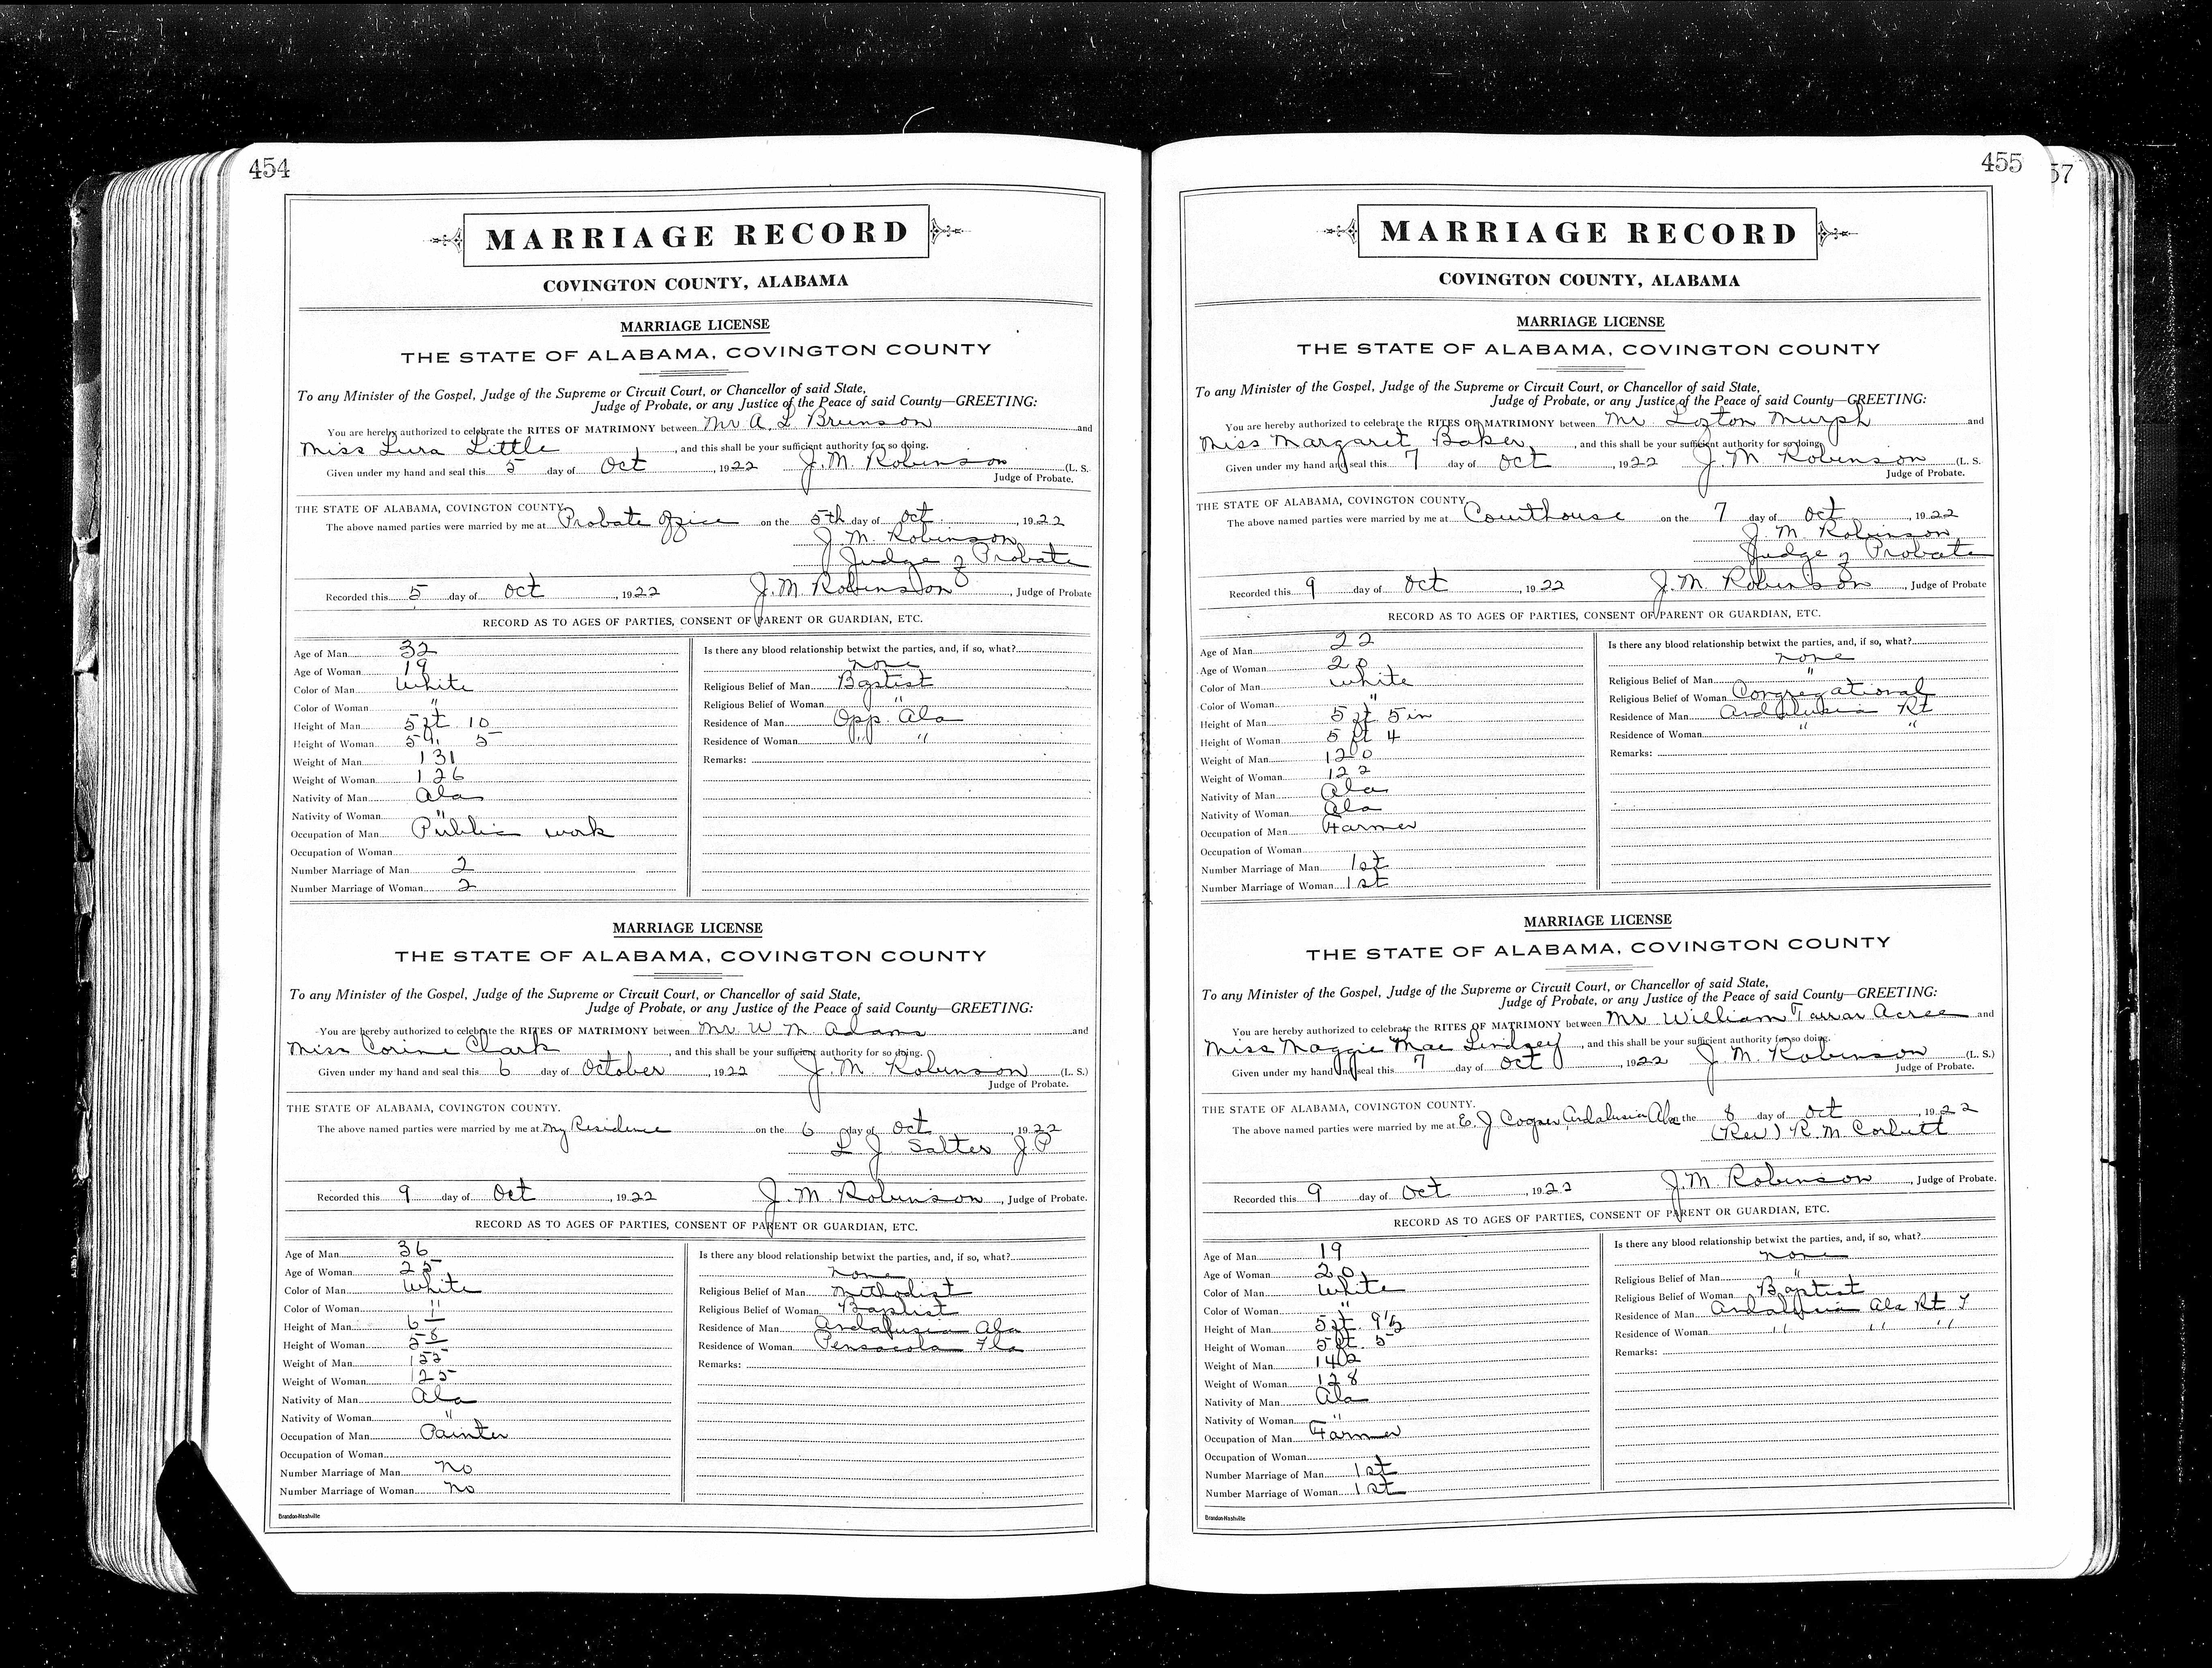 454
MARRIAGE RECORD
COVINGTON COUNTY, ALABAMA
MARRIAGE LICENSE
THE STATE OF ALABAMA, COVINGTON COUNTY
To any Minister of the Gospel, Judge of the Supreme or Circuit Court, or Chancellor of said State,
Judge of Probate, or any Justice of the Peace of said County—GREETING:
You are hereby authorized to celebrate the RITES OF MATRIMONY between Mr A. L Brunson and
Miss Lura Little, and this shall be your sufficient authority for so doing.
Given under my hand and seal this 5 day of Oct, 1922 J. M. Robinson (L. S.
Judge of Probate.
THE STATE OF ALABAMA, COVINGTON COUNTY.
The above named parties were married by me at Probate Office on the 5th day of Oct. 1922
J. M. Robinson
Judge of Probate
Recorded this 5 day of Oct, 1922 J. M. Robinson, Judge of Probate
RECORD AS TO AGES OF PARTIES, CONSENT OF PARENT OR GUARDIAN, ETC.
Age of Man 32
Age of Woman 19
Color of Man White
Color of Woman "
Height of Man 5 ft 10
Height of Woman 5 " 5
Weight of Man 131
Weight of Woman 126
Nativity of Man Ala
Nativity of Woman "
Occupation of Man Public work
Occupation of Woman
Number Marriage of Man 2
Number Marriage of Woman 2
Is there any blood relationship betwixt the parties, and, if so, what?
none
Religious Belief of Man Baptist
Religious Belief of Woman "
Residence of Man Opp. Ala
Residence of Woman " "
Remarks:
MARRIAGE LICENSE
THE STATE OF ALABAMA, COVINGTON COUNTY
To any Minister of the Gospel, Judge of the Supreme or Circuit Court, or Chancellor of said State,
Judge of Probate, or any Justice of the Peace of said County—GREETING:
You are hereby authorized to celebrate the RITES OF MATRIMONY between Mr. W M Adams and
Miss Corine Clark, and this shall be your sufficient authority for so doing.
Given under my hand and seal this 6 day of October, 1922 J. M. Robinson (L. S.)
Judge of Probate.
THE STATE OF ALABAMA, COVINGTON COUNTY.
The above named parties were married by me at My Residence on the 6 day of Oct, 1922
L J. Salter J. P
Recorded this 9 day of Oct, 1922 J. M Robinson, Judge of Probate.
RECORD AS TO AGES OF PARTIES, CONSENT OF PARENT OR GUARDIAN, ETC.
Age of Man 36
Age of Woman 25
Color of Man White
Color of Woman "
Height of Man 6
Height of Woman 5 8
Weight of Man 155
Weight of Woman 125
Nativity of Man Ala
Nativity of Woman "
Occupation of Man Painter
Occupation of Woman
Number Marriage of Man no
Number Marriage of Woman no
Is there any blood relationship betwixt the parties, and, if so, what?
none
Religious Belief of Man Methodist
Religious Belief of Woman Baptist
Residence of Man Andalusia Ala
Residence of Woman Pensacola Fla
Remarks:
Brandon-Nashville
455
57
MARRIAGE RECORD
COVINGTON COUNTY, ALABAMA
MARRIAGE LICENSE
THE STATE OF ALABAMA, COVINGTON COUNTY
To any Minister of the Gospel, Judge of the Supreme or Circuit Court, or Chancellor of said State,
Judge of Probate, or any Justice of the Peace of said County—GREETING:
You are hereby authorized to celebrate the RITES OF MATRIMONY between Mr. Murph and
Miss Margaret Baker, and this shall be your sufficient authority for so doing.
Given under my hand and seal this 7 day of Oct, 1922 J. M Robinson (L. S.
Judge of Probate.
THE STATE OF ALABAMA, COVINGTON COUNTY.
The above named parties were married by me at Courthouse on the 7 day of Oct, 1922
J. M. Robinson
Judge of Probate
Recorded this 9 day of Oct, 1922 J. M. Robinson, Judge of Probate
RECORD AS TO AGES OF PARTIES, CONSENT OF PARENT OR GUARDIAN, ETC.
Age of Man 22
Age of Woman 20
Color of Man White
Color of Woman "
Height of Man 5 ft 5 in
Height of Woman 5 ft 4
Weight of Man 120
Weight of Woman 122
Nativity of Man Ala
Nativity of Woman Ala
Occupation of Man Farmer
Occupation of Woman
Number Marriage of Man 1st
Number Marriage of Woman 1st
Is there any blood relationship betwixt the parties, and, if so, what?
none
Religious Belief of Man "
Religious Belief of Woman Congregational
Residence of Man Andalusia Rt
Residence of Woman " "
Remarks:
MARRIAGE LICENSE
THE STATE OF ALABAMA, COVINGTON COUNTY
To any Minister of the Gospel, Judge of the Supreme or Circuit Court, or Chancellor of said State,
Judge of Probate, or any Justice of the Peace of said County—GREETING:
You are hereby authorized to celebrate the RITES OF MATRIMONY between Mr William Tarrar Acree and
Miss Maggie Mae Lindsey, and this shall be your sufficient authority for so doing.
Given under my hand and seal this 7 day of Oct, 1922 J. M. Robinson (L. S.)
Judge of Probate.
THE STATE OF ALABAMA, COVINGTON COUNTY.
The above named parties were married by me at E. J Cooper, Andalusia Ala on the 8 day of Oct, 1922
(Rev) R. M. Corbett
Recorded this 9 day of Oct, 1922 J. M. Robinson, Judge of Probate.
RECORD AS TO AGES OF PARTIES, CONSENT OF PARENT OR GUARDIAN, ETC.
Age of Man 19
Age of Woman 20
Color of Man White
Color of Woman "
Height of Man 5 ft. 9½
Height of Woman 5 ft. 5
Weight of Man
Weight of Woman 128
Nativity of Man Ala
Nativity of Woman "
Occupation of Man Farmer
Occupation of Woman
Number Marriage of Man 1st
Number Marriage of Woman 1st
Is there any blood relationship betwixt the parties, and, if so, what?
none
Religious Belief of Man "
Religious Belief of Woman Baptist
Residence of Man Andalusia Ala Rt
Residence of Woman " " "
Remarks:
Brandon-Nashville